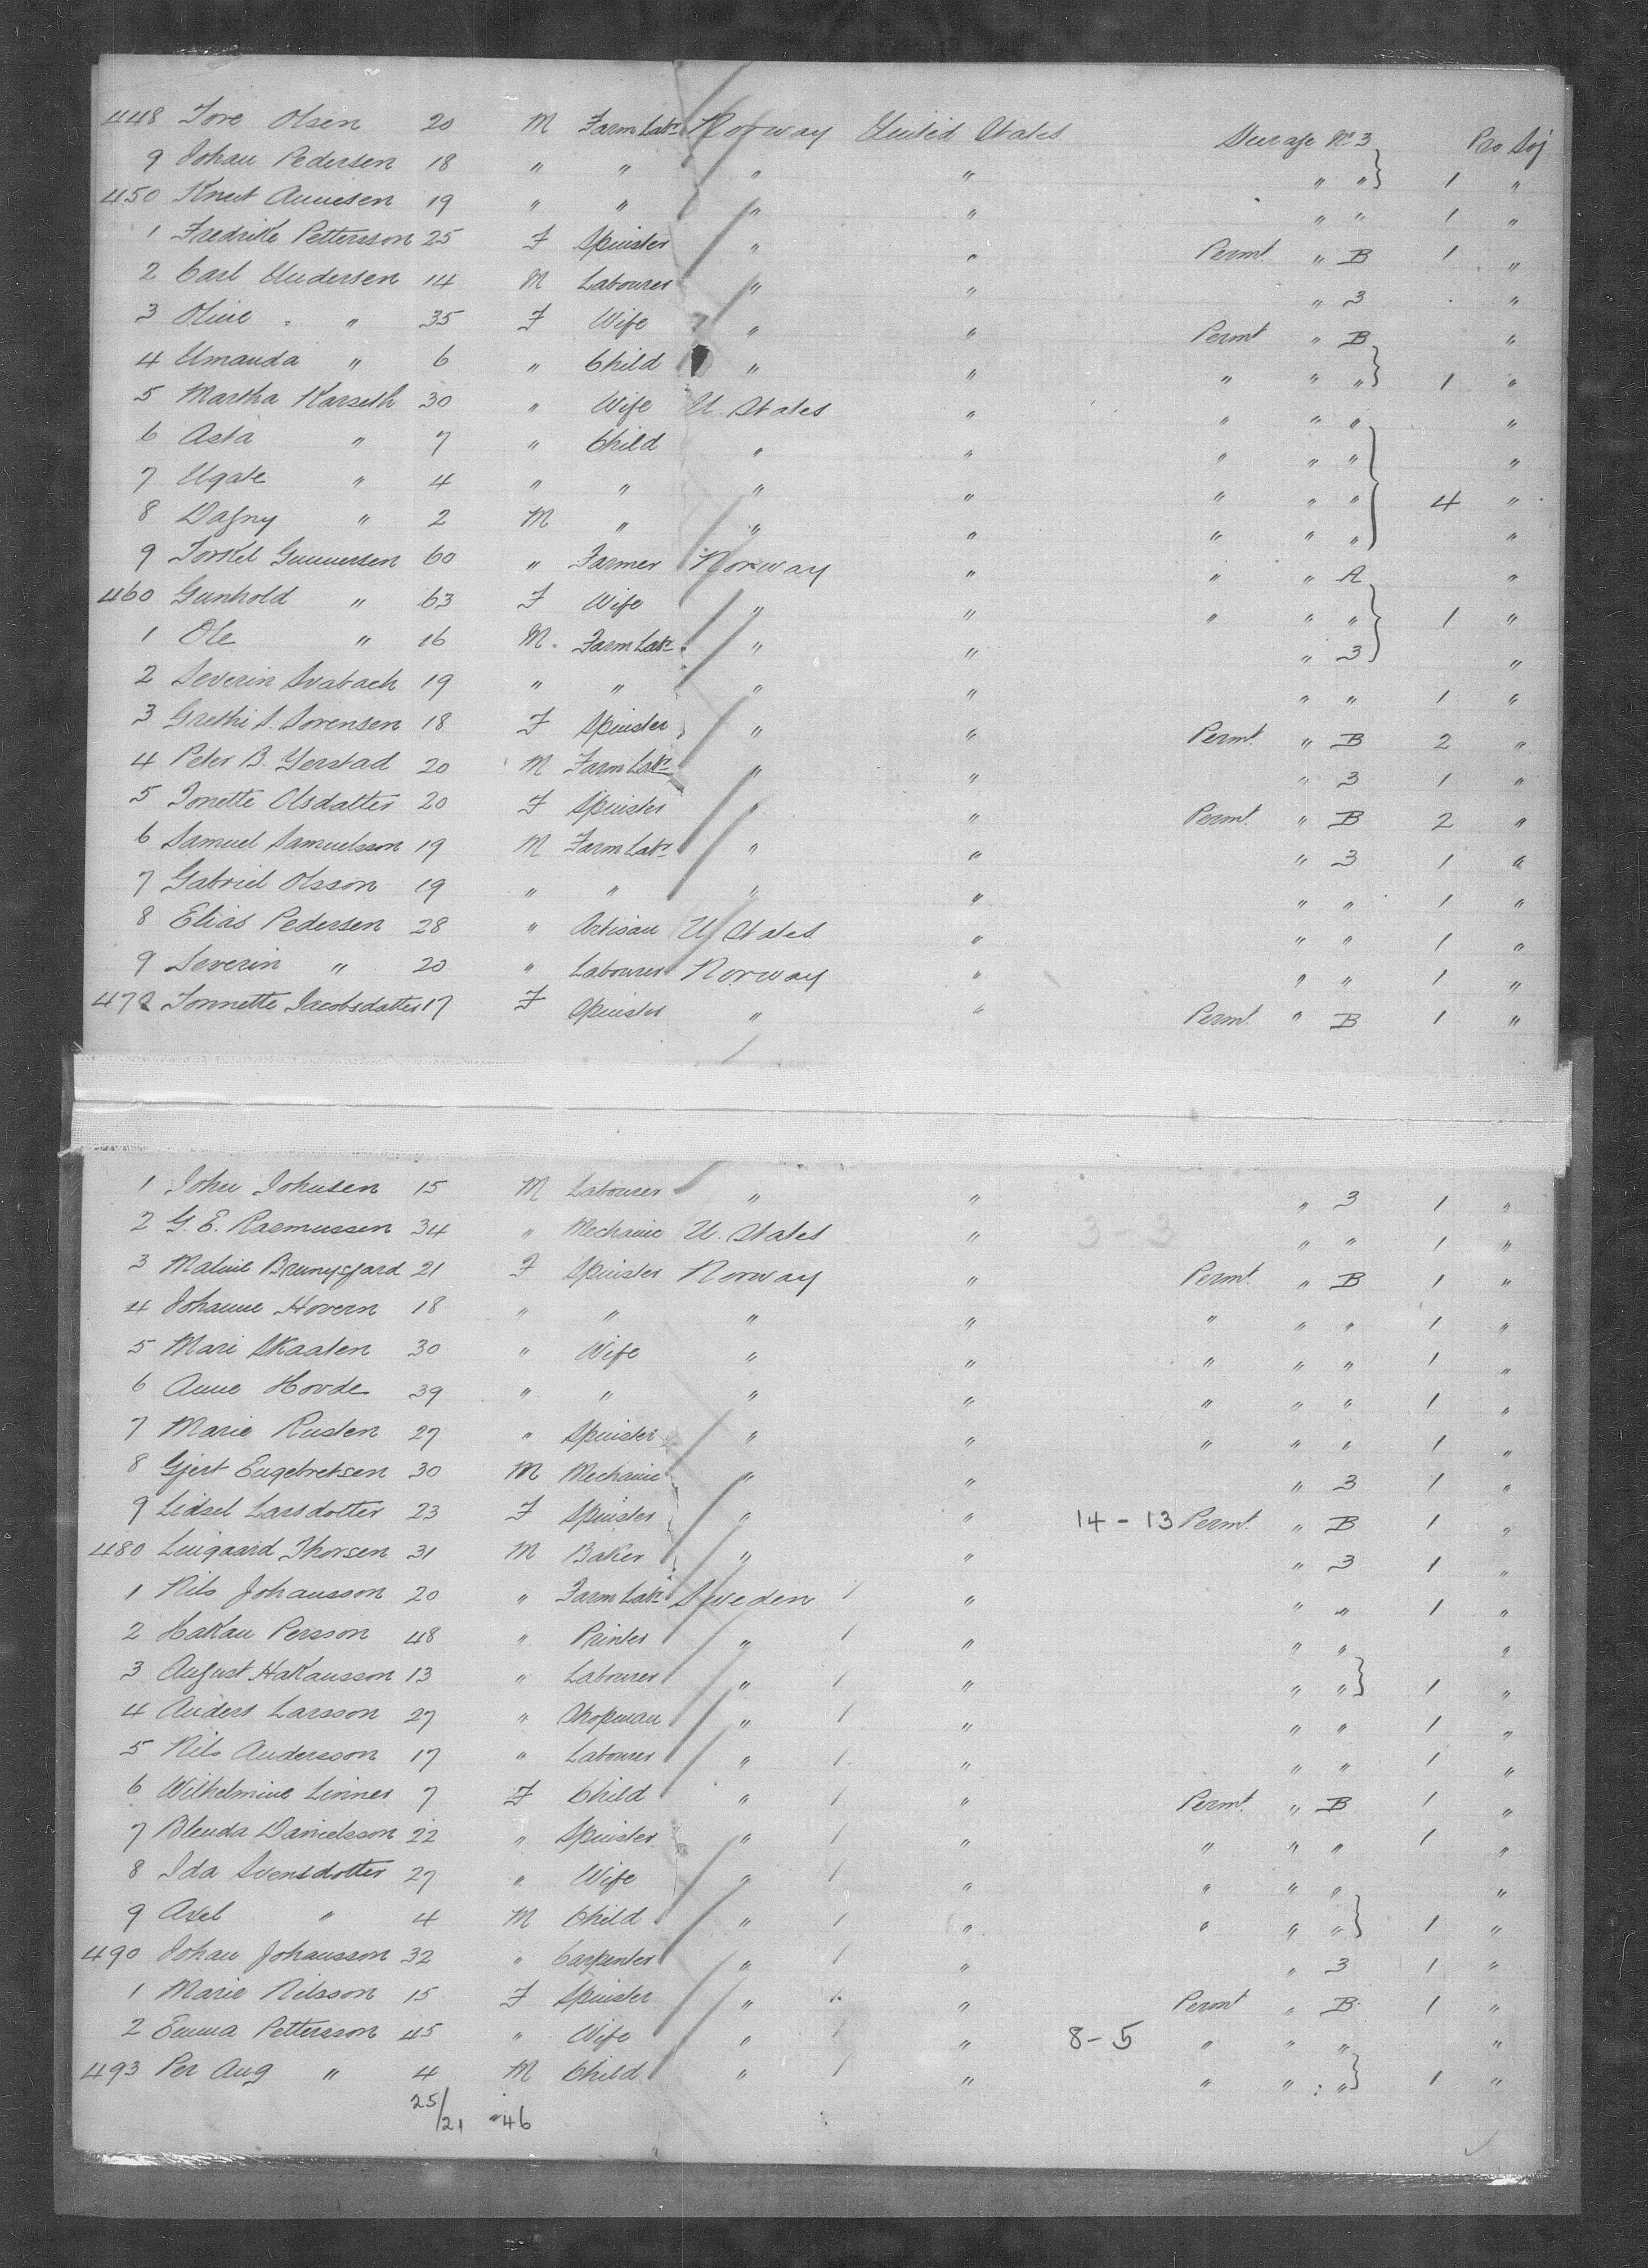 448 Tore Olsen 20 M Farm Labr. Norway United States Steerage No 3 Pro Soj
9 Johan Pedersen 18 " " " " " " } 1 "
450 Knut Aunesen 19 " " " " " " 1 "
1 Fredrike Pettersson 25 F Spinster " " Permt. " B 1 "
2 Carl Andersen 14 M Labourer " " " 3 . "
3 Oline " 35 F Wife " " Permt " B "
4 Amanda " 6 " Child " " " " " } 1 "
5 Martha Karseth 30 " Wife U. States " " " " "
6 Asta " 7 " Child " " " " " "
7 Agate " 4 " " " " " " " } 4 "
8 Dagny " 2 M " " " " " " "
9 Torkel Gunnersen 60 " Farmer Norway " " " A "
460 Gunhold " 63 F Wife " " " " " } 1 "
1 Ole " 16 M. Farm Labr. " " " 3 "
2 Severin Svabach 19 " " " " " " 1 "
3 Grethi S. Sorensen 18 F Spinster " " Permt. " B 2 "
4 Peter B. Yerstad 20 M Farm Labr. " " " 3 1 "
5 Tonette Olsdatter 20 F Spinster " " Permt. " B 2 "
6 Samuel Samuelsson 19 M Farm Labr. " " " 3 1 "
7 Gabriel Olsson 19 " " " " " " 1 "
8 Elias Pedersen 28 " Artisan U. States " " " 1 "
9 Severin " 20 " Labourer Norway " " " 1 "
472 Tonnette Jacobsdatter 17 F Spinster " " Permt. " B 1 "
1 John Johnsen 15 M Labourer " " " 3 1 "
2 G. E. Rasmussen 34 " Mechanic U. States " 3 - 3 " " 1 "
3 Maline 21 F Spinster Norway " Permt. " B 1 "
4 Johanne Hovern 18 " " " " " " " 1 "
5 Mari Skaaten 30 " Wife " " " " " 1 "
6 Anne Hovde 39 " " " " " " " 1 "
7 Marie Rusten 27 " Spinster " " " " " 1 "
8 Gjert Engebretsen 30 M Mechanic " " " 3 1 "
9 Lidsel Larsdotter 23 F Spinster " " 14 - 13 Permt. " B 1 "
480 Lingaard Thorsen 31 M Baker " " " 3 1 "
1 Nils Johansson 20 " Farm Labr. Sweden 1 " " " 1 "
2 Hakan Persson 48 " Printer " 1 " " " "
3 August Hakansson 13 " Labourer " 1 " " " } 1 "
4 Anders Larsson 27 " Shopman " 1 " " " 1 "
5 Nils Andersson 17 " Labourer " 1 " " " 1 "
6 Wilhelmine Linner 7 F Child " 1 " Permt. " B 1 "
7 Blenda Danielsson 22 " Spinster " 1 " " " " 1 "
8 Ida Svensdotter 27 " Wife " 1 " " " " "
9 Axel " 4 M Child " 1 " " " " } 1 "
490 Johan Johansson 32 " Carpenter " 1 " " 3 1 "
1 Marie Nilsson 15 F Spinster " " " Permt " B 1 "
2 Emma Pettersson 45 " Wife " 1 " 8 - 5 " " " "
493 Per Aug " 4 M Child " 1 " " " " } 1 "
25/21 "46